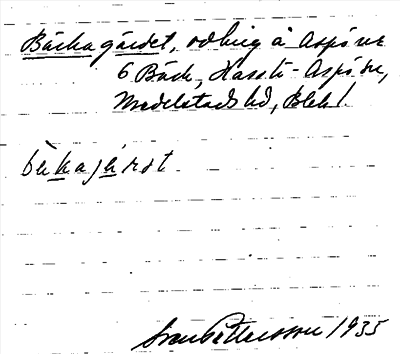 Bäckagärdet, odling å Aspö nr
6 Bäck, Hasslö-Aspö sn,
Medelstads hd, Blek l.
bækajærdt.
Sven Pettersson 1935